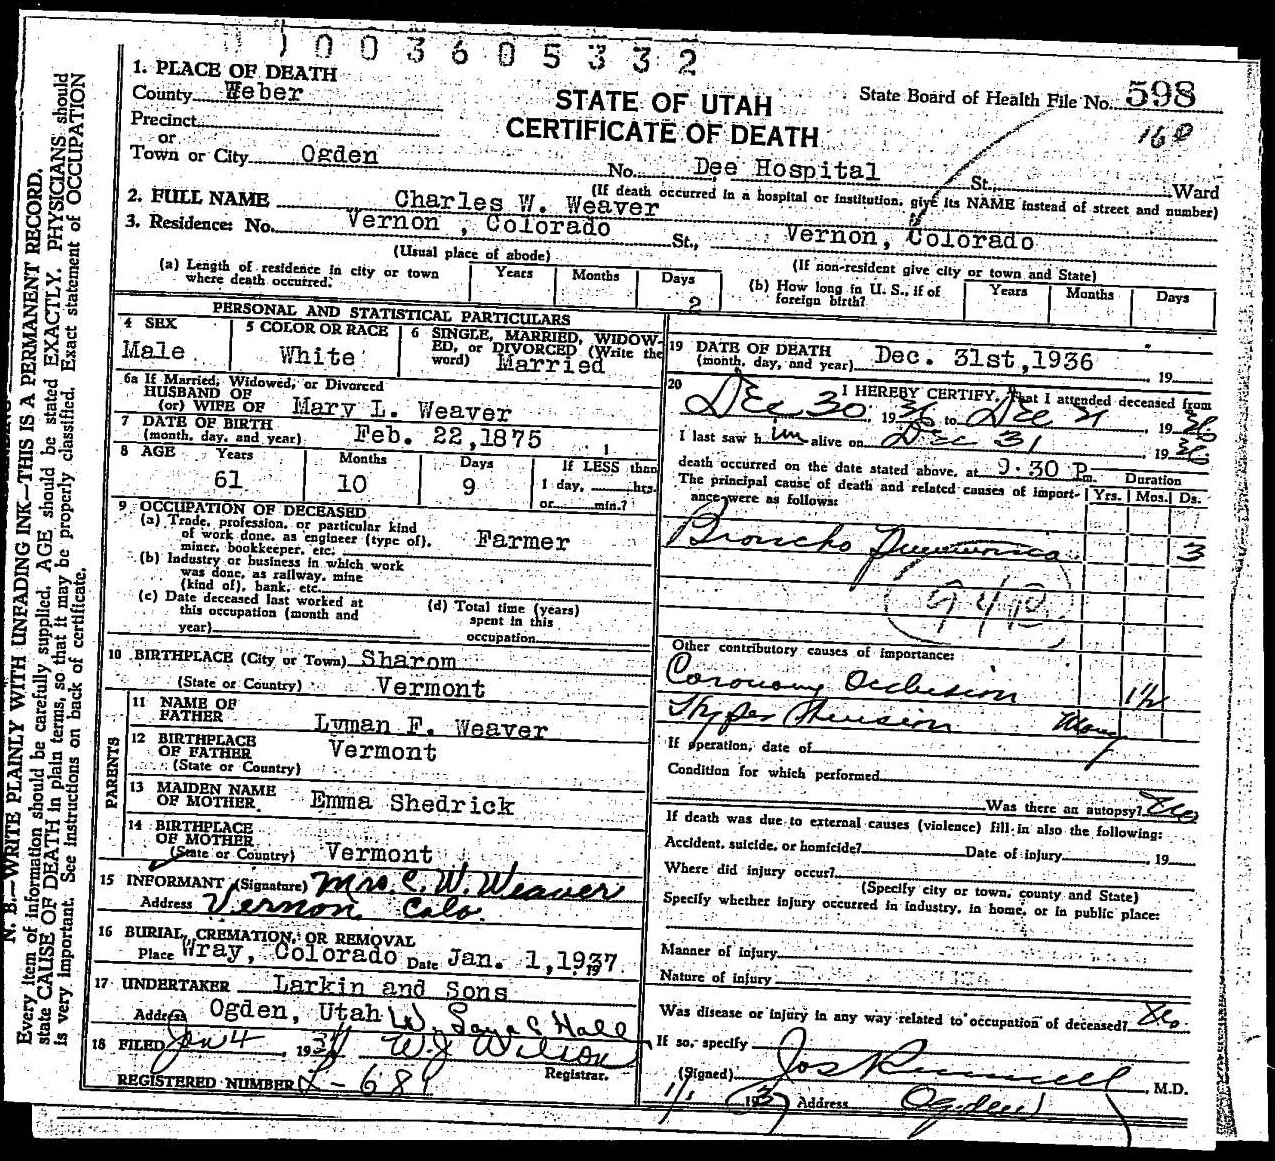 1003605332
1. PLACE OF DEATH
County Weber
Precinct
or
Town or City Ogden
STATE OF UTAH
CERTIFICATE OF DEATH
State Board of Health File No. 598
160
No. Dee Hospital St., Ward
(If death occurred in a hospital or institution, give its NAME instead of street and number)
2. FULL NAME Charles W. Weaver
3. Residence: No. Vernon, Colorado St., Vernon, Colorado
(Usual place of abode) (If non-resident give city or town and State)
(a) Length of residence in city or town where death occurred. Years Months Days 2
(b) How long in U. S., if of foreign birth? Years Months Days
PERSONAL AND STATISTICAL PARTICULARS
4 SEX Male
5 COLOR OR RACE White
6 SINGLE, MARRIED, WIDOWED, or DIVORCED (Write the word) Married
6a If Married, Widowed, or Divorced
HUSBAND OF
(or) WIFE OF Mary L. Weaver
7 DATE OF BIRTH
(month, day, and year) Feb. 22,1875
8 AGE Years 61 Months 10 Days 9 If LESS than 1 day, hrs. or min.?
9 OCCUPATION OF DECEASED
(a) Trade, profession, or particular kind
of work done, as engineer (type of),
miner, bookkeeper, etc. Farmer
(b) Industry or business in which work
was done, as railway, mine
(kind of), bank, etc.
(c) Date deceased last worked at
this occupation (month and
year)
(d) Total time (years)
spent in this
occupation
10 BIRTHPLACE (City or Town) Sharom
(State or Country) Vermont
PARENTS
11 NAME OF
FATHER Lyman F. Weaver
12 BIRTHPLACE
OF FATHER Vermont
(State or Country)
13 MAIDEN NAME
OF MOTHER Emma Shedrick
14 BIRTHPLACE
OF MOTHER
(State or Country) Vermont
15 INFORMANT (Signature) Mrs. C. W. Weaver
Address Vernon Colo.
16 BURIAL, CREMATION, OR REMOVAL
Place Wray, Colorado Date Jan. 1,1937 19
17 UNDERTAKER Larkin and Sons
Address Ogden, Utah W. Hall
18 FILED Jan 4, 193 W. J. Wilson
Registrar.
REGISTERED NUMBER L-681
19 DATE OF DEATH
(month, day, and year) Dec. 31st,1936, 19
20 I HEREBY CERTIFY, That I attended deceased from
Dec 30, 1936 to Dec 31, 1936
I last saw him alive on Dec 31 1936
death occurred on the date stated above, at 9.30 P.m. Duration
The principal cause of death and related causes of importance were as follows: Yrs. Mos. Ds.
Broncho Pneumonia 3
Other contributory causes of importance:
Coronary Occlusion 1½
Hyper Tension Many
If operation, date of
Condition for which performed
Was there an autopsy? No
If death was due to external causes (violence) fill in also the following:
Accident, suicide, or homicide? Date of injury, 19
Where did injury occur?
(Specify city or town, county and State)
Specify whether injury occurred in industry, in home, or in public place:
Manner of injury
Nature of injury
Was disease or injury in any way related to occupation of deceased? No
If so, specify
(Signed) Jos, M.D.
1/1 1937 Address Ogden
N. B.—WRITE PLAINLY WITH UNFADING INK—THIS IS A PERMANENT RECORD.
Every item of information should be carefully supplied. AGE should be stated EXACTLY. PHYSICIANS should
state CAUSE OF DEATH in plain terms, so that it may be properly classified. Exact statement of OCCUPATION
is very important. See instructions on back of certificate.